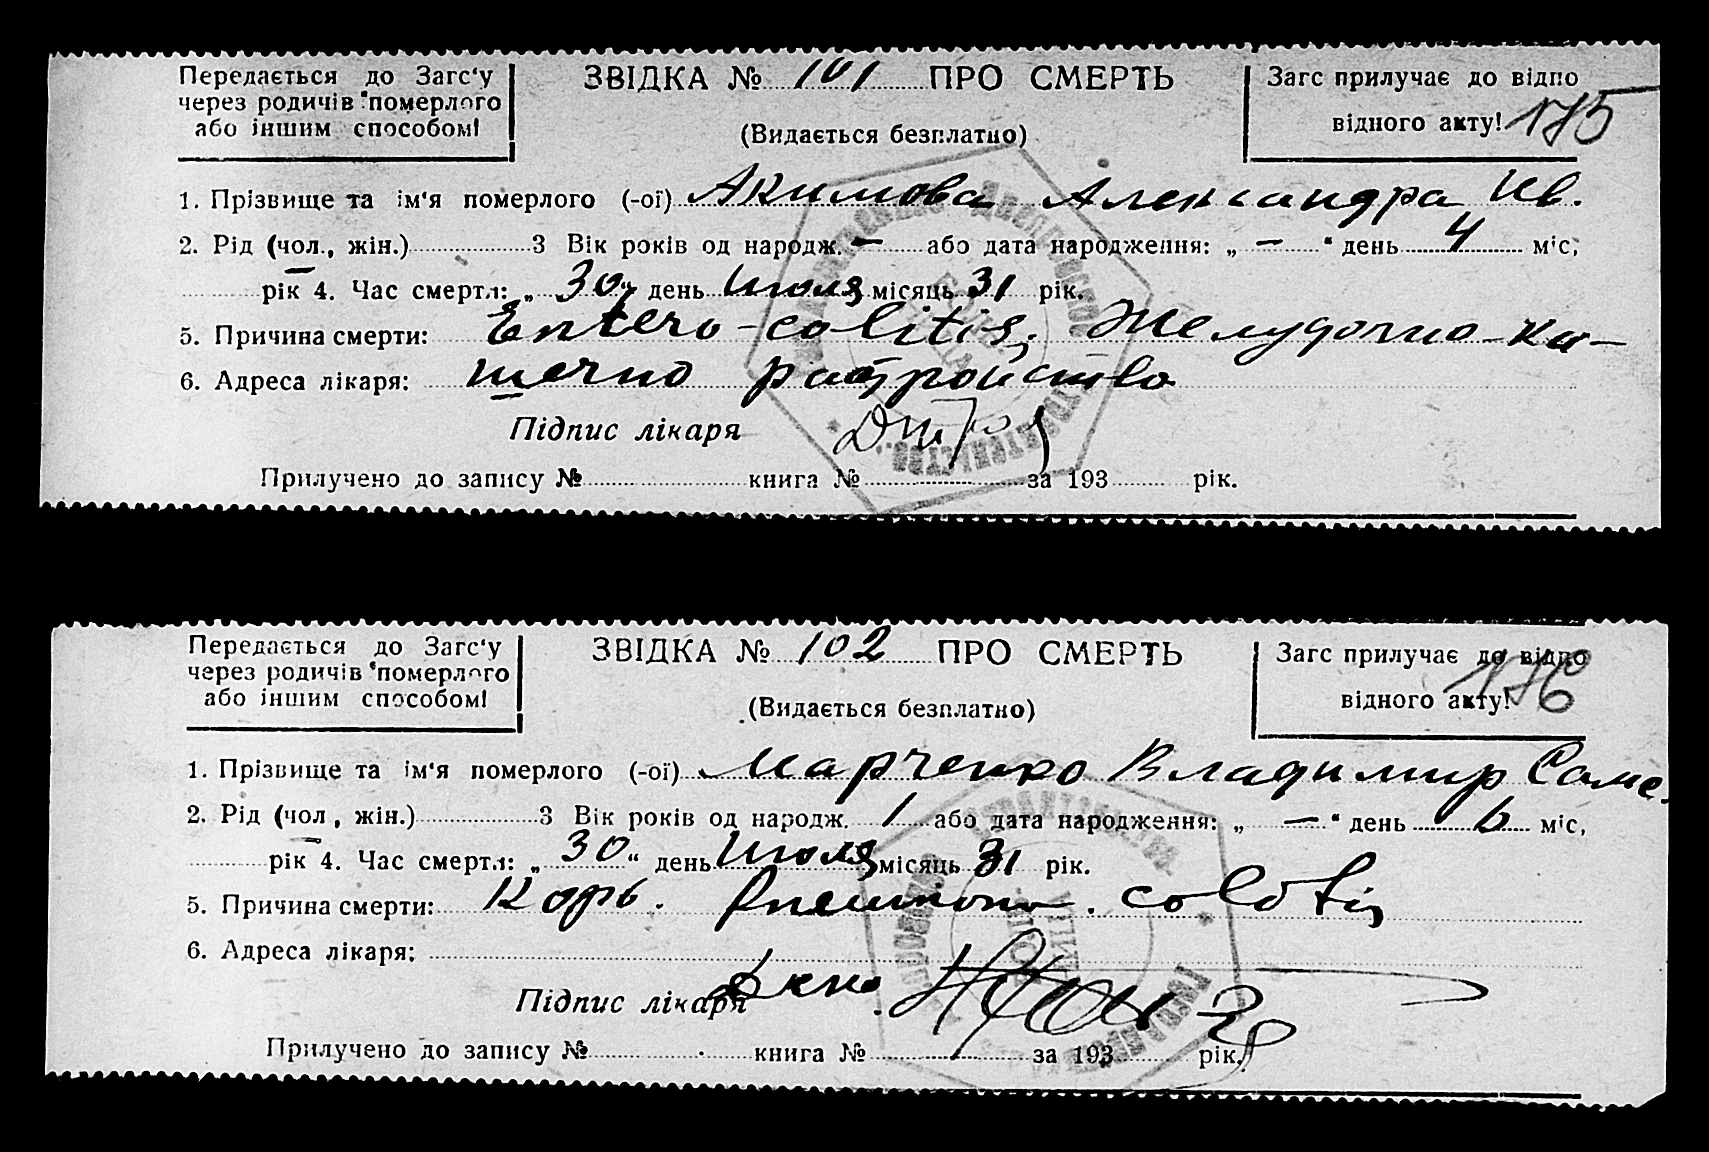 Передається до Загс'у
через родичів померлого
або іншим способом!
ЗВІДКА № 101 ПРО СМЕРТЬ
(Видається безплатно)
Загс прилучає до відпо
відного акту! 175
1. Прізвище та ім'я померлого (-ої) Акимова Александра Ив.
2. Рід (чол., жін.) 3 Вік років од народж. — або дата народження: „ — " день 4 міс,
рік 4. Час смерти: „ 30 " день Июля місяць 31 рік.
5. Причина смерти: Entero-colitis, Желудочно-ки-
6. Адреса лікаря: шечно расстройство
Підпис лікаря
Прилучено до запису № книга № за 193 рік.
Передається до Загс'у
через родичів померлого
або іншим способом!
ЗВІДКА № 102 ПРО СМЕРТЬ
(Видається безплатно)
Загс прилучає до відпо
відного акту! 176
1. Прізвище та ім'я померлого (-ої) Марченко Владимир Саме.
2. Рід (чол, жін.) 3 Вік років од народж. 1 або дата народження: „ — " день 6 міс,
рік 4. Час смерти: „ 30 " день Июля місяць 31 рік.
5. Причина смерти: Корь.
6. Адреса лікаря:
Підпис лікаря
Прилучено до запису № книга № за 193 рік.